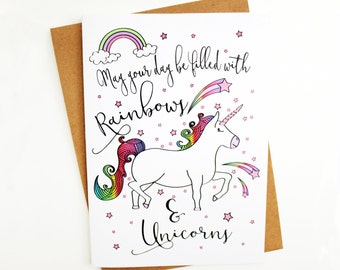 May your day be filled with
Rainbows
&
Unicorns